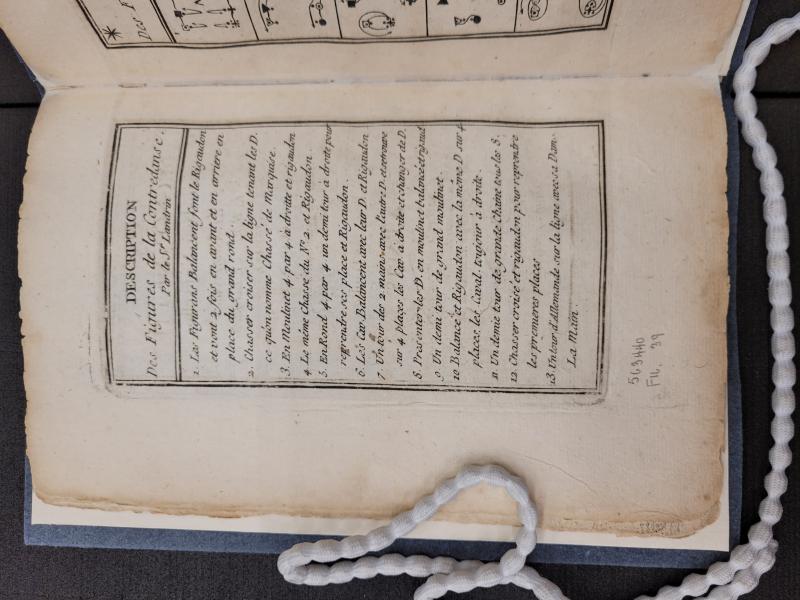 DESCRIPTION
Des Figures de la Contredanse.
Par le Sr. Landrin
1. Les Figurans Balancent font le Rigaudon
et vont 2 fois en avant et en arriere en
place du grand rond.
2. Chasser croiser sur la ligne tenant les D.
ce qu'on nomme Chassé de Marquise.
3. En Moulinet 4 par 4 à droite et rigaudon
4. Le même Chasse du No. 2. et Rigaudon.
5. En Rond 4 par 4 un demi tour à droite pour
reprendre ses place et Rigaudon.
6. Les Cav Balancent avec leur D. et Rigaudon
7. Un tour des 2 mains avec l'autre D. et se trouve
sur 4 places les Cav. à droite et changer de D.
8. Presenter les D. en moulinet balancé et rigaud
9. Un demi tour de grand moulinet.
10 Balancé et Rigaudon avec la même D sur 4
places les Caval. toujour à droite.
11. Un demie tour de grande chaine tous les 8.
12. Chasser croisé et rigaudon pour reprendre
les premieres places
13. Un tour d'Allemande sur la ligne avec sa Dam.
La Main.
563440
F16. 39
Des F